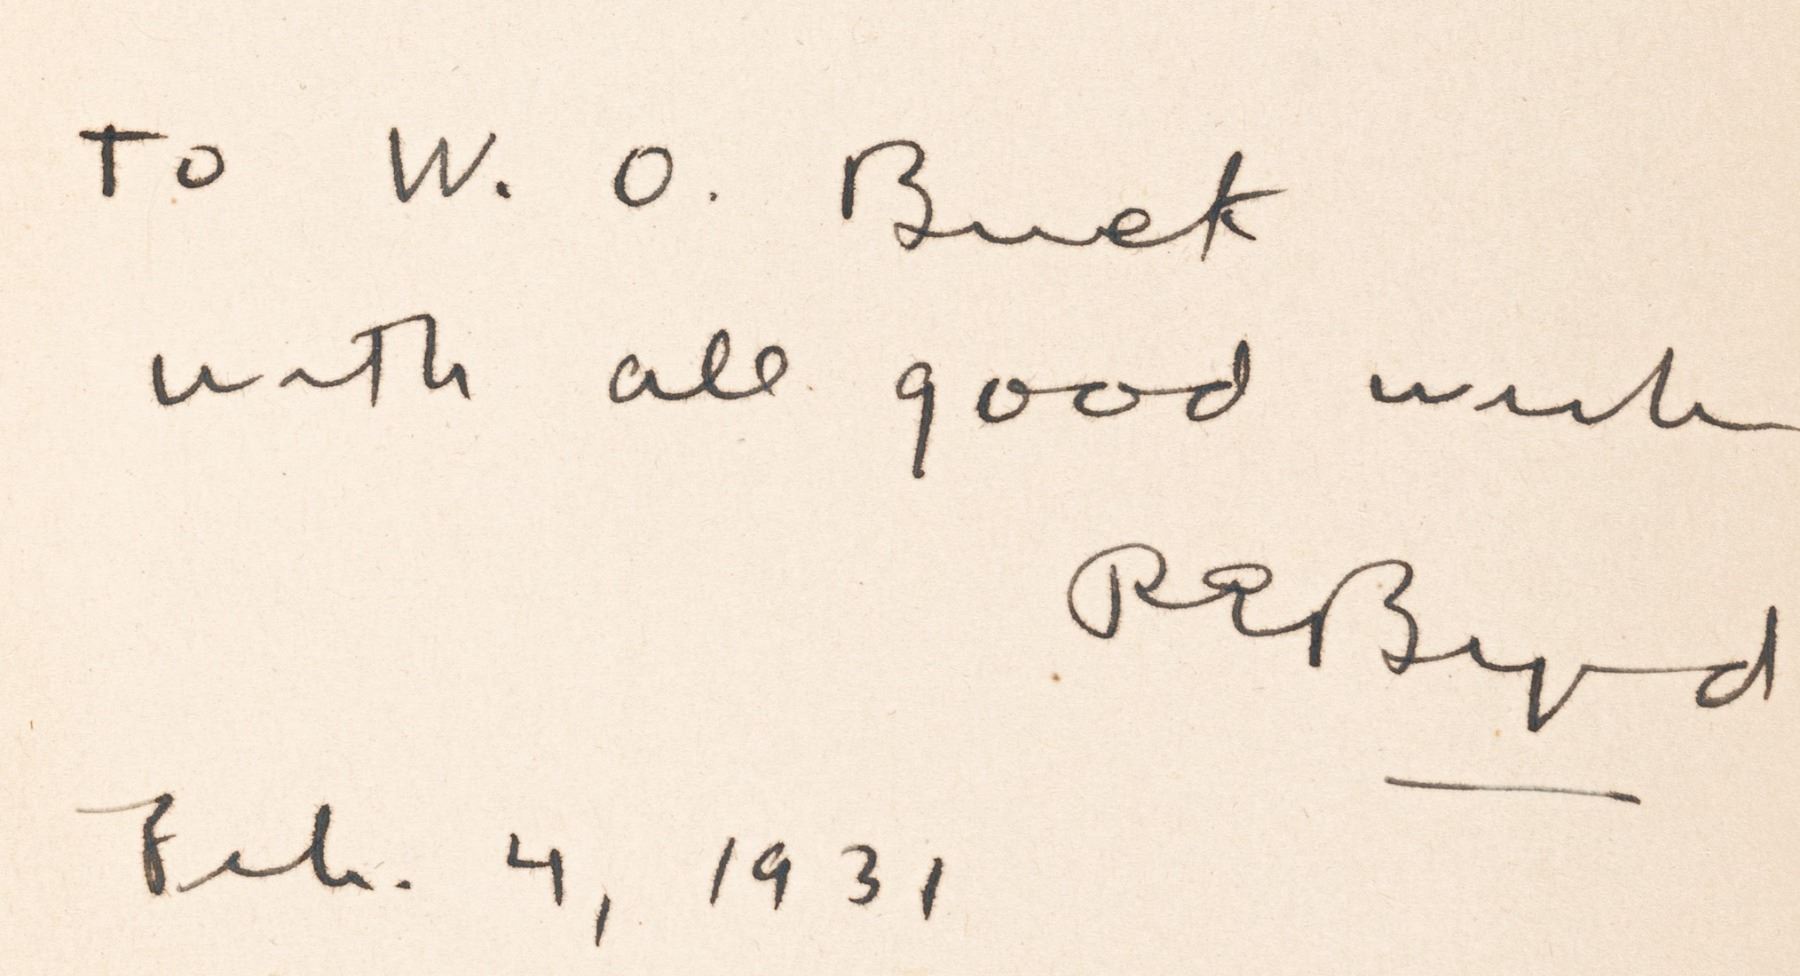 To W. O. Buck
with all good wishes
RE Byrd
Feb. 4, 1931